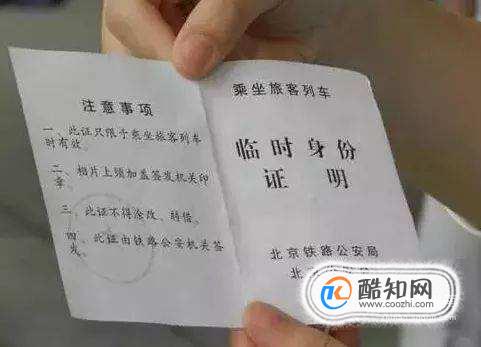 注意事项
一、此证只限于乘坐旅客列车
时有效。
二、相片上须加盖签发机关印
章。
三、此证不得涂改、转借。
四、此证由铁路公安机关签
发。
乘坐旅客列车
临时身份
证明
北京铁路公安局
酷知网
www.coozhi.com